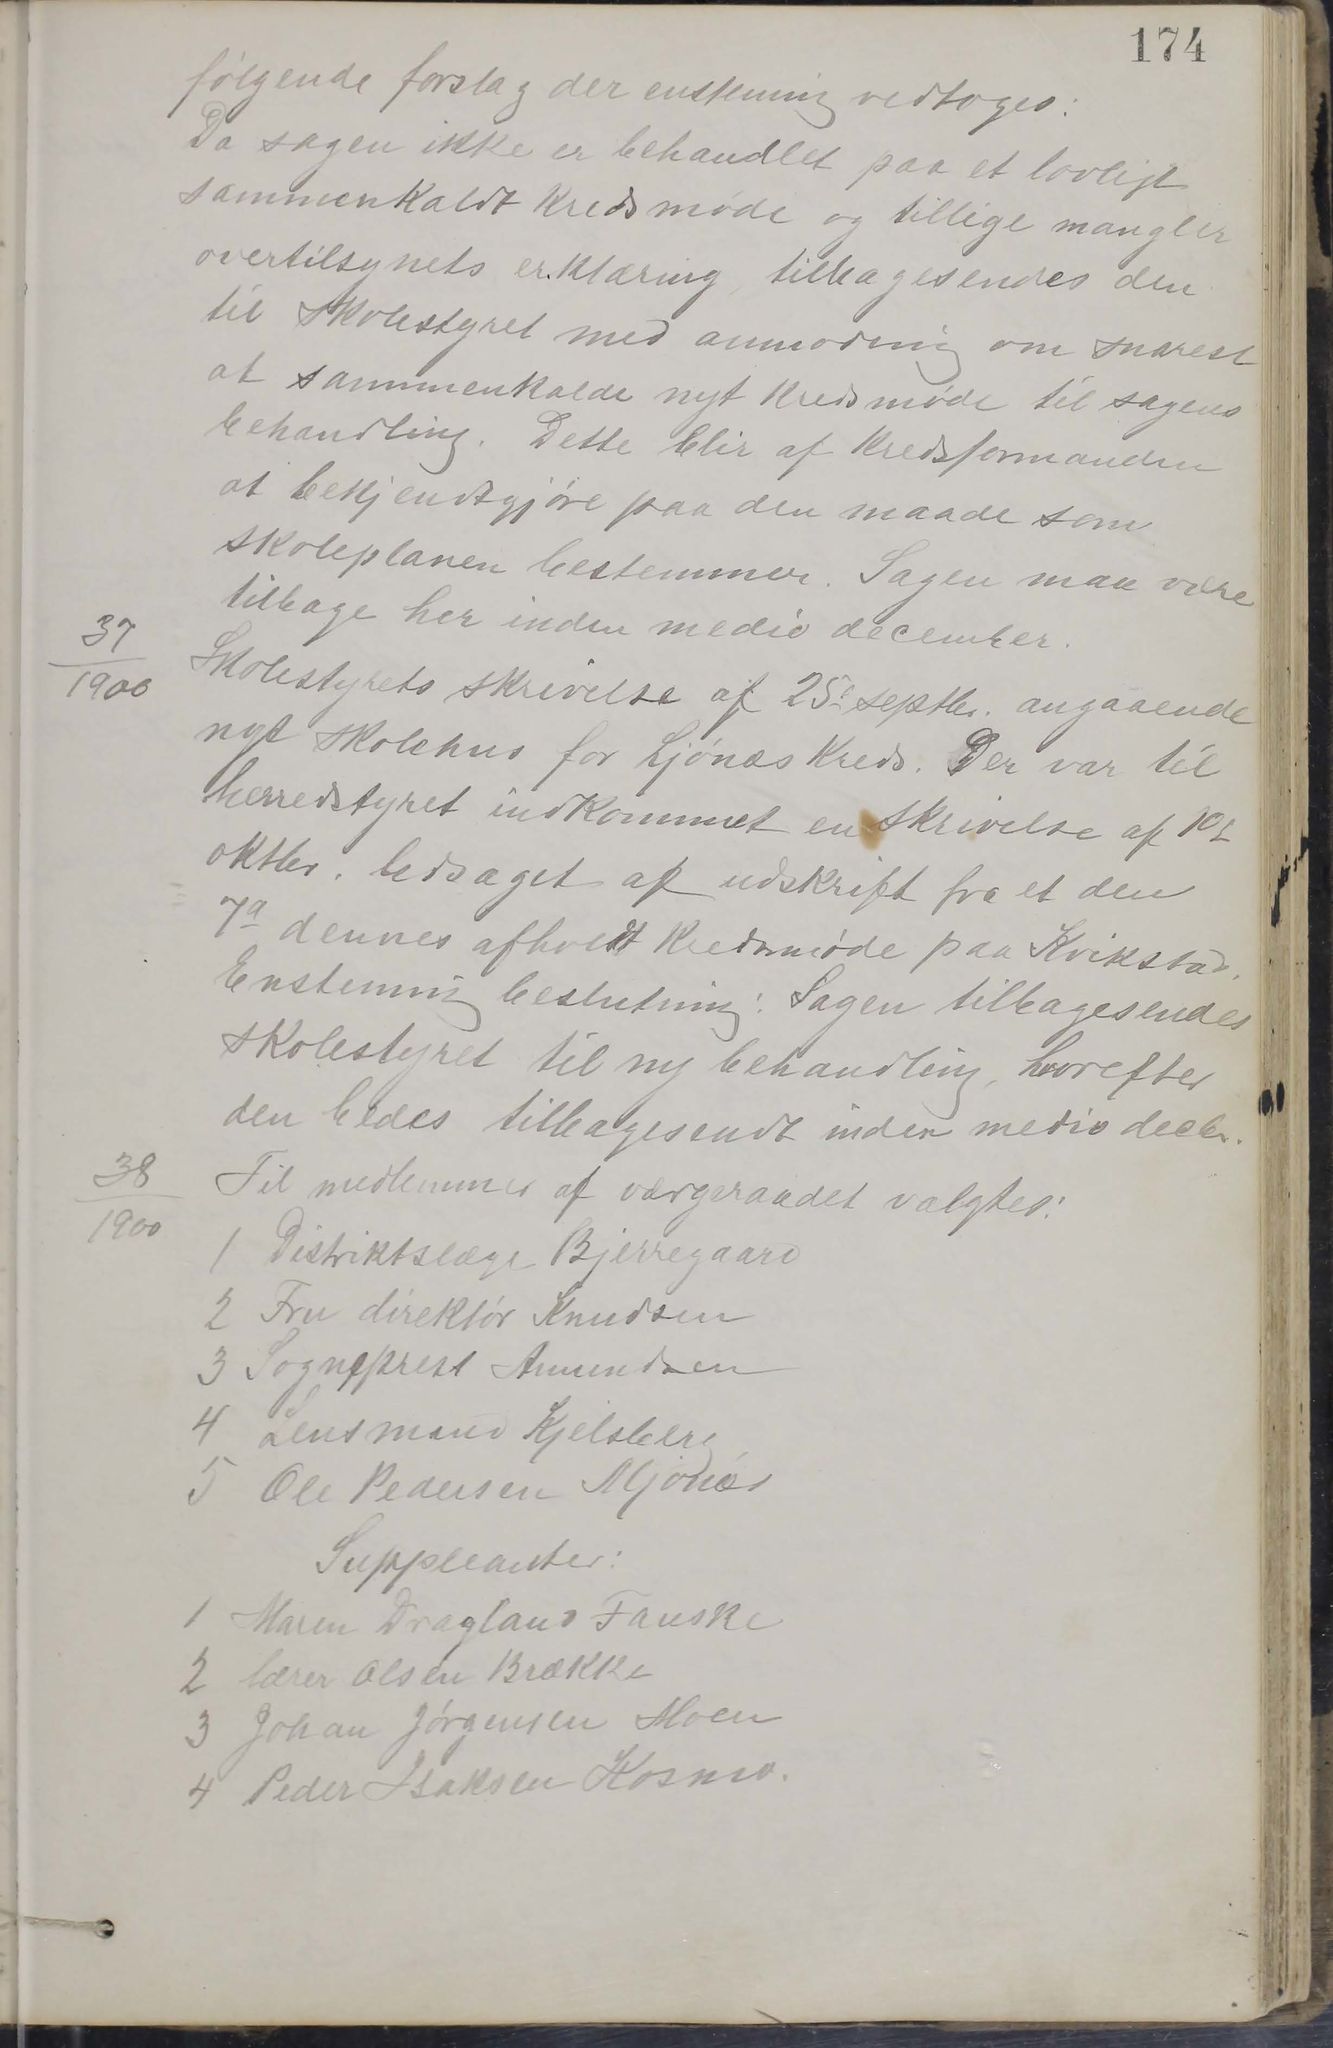 174
følgende forslag der enstemmig vedtoges:
Da sagen ikke er behandlet paa et lovligt
sammenkaldt kredsmøde og tillige mangler
overtilsynets erklæring, tilbagesendes den
til skolestyret med anmodning om snarest
at sammenkalde nyt kredsmøde til sagens
behandling. Dette blir af kredsformanden
at bekjendtgjøre paa den maade som
skoleplanen bestemmer. Sagen maa være
tilbage her inden medio december.
37/1900
Skolestyrets skrivelse af 25de septbr. angaaende
nyt skolehus for Ljønes kreds. Der var til
herredstyret indkommet en skrivelse af 10de
oktbr. ledsaget af udskrift fra et den
7de dennes afholdt kredsmøde paa Kvikstad.
Enstemmig beslutning: Sagen tilbagesendes
skolestyret til ny behandling, hvorefter
den bedes tilbagesendt inden medio decbr.
38/1900
Til medlemmer af værgeraadet valgtes:
1 Distriktslæge Bjerregaard
2 Fru direktør Knudsen
3 Sogneprest Amundsen
4 Lensmand Kjelsberg
5 Ole Pedersen Mjønes
Suppleanter:
1 Maren Dragland Fauske
2 lærer Olsen Brække
3 Johan Jørgensen Moen
4 Peder Isaksen Kosmo.